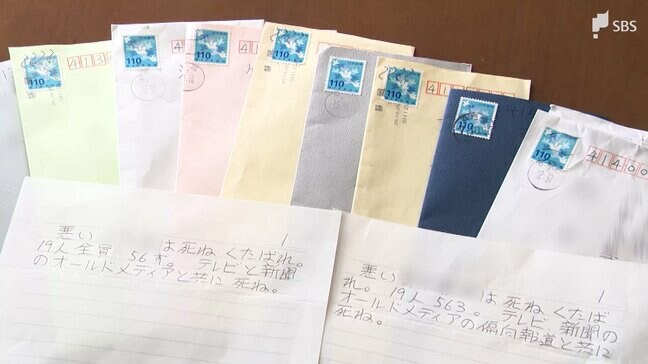 SBS
110
110
110
110
110
110
110
110
413
41400
悪い 1
は死ね くたばれ。
19人全員 56す。 テレビと新聞
のオールドメディアと共に 死ね。
悪い 1
は死ね くたば
れ。 19人 563。 テレビ、新聞の
オールドメディアの偏向報道と共に
死ね。